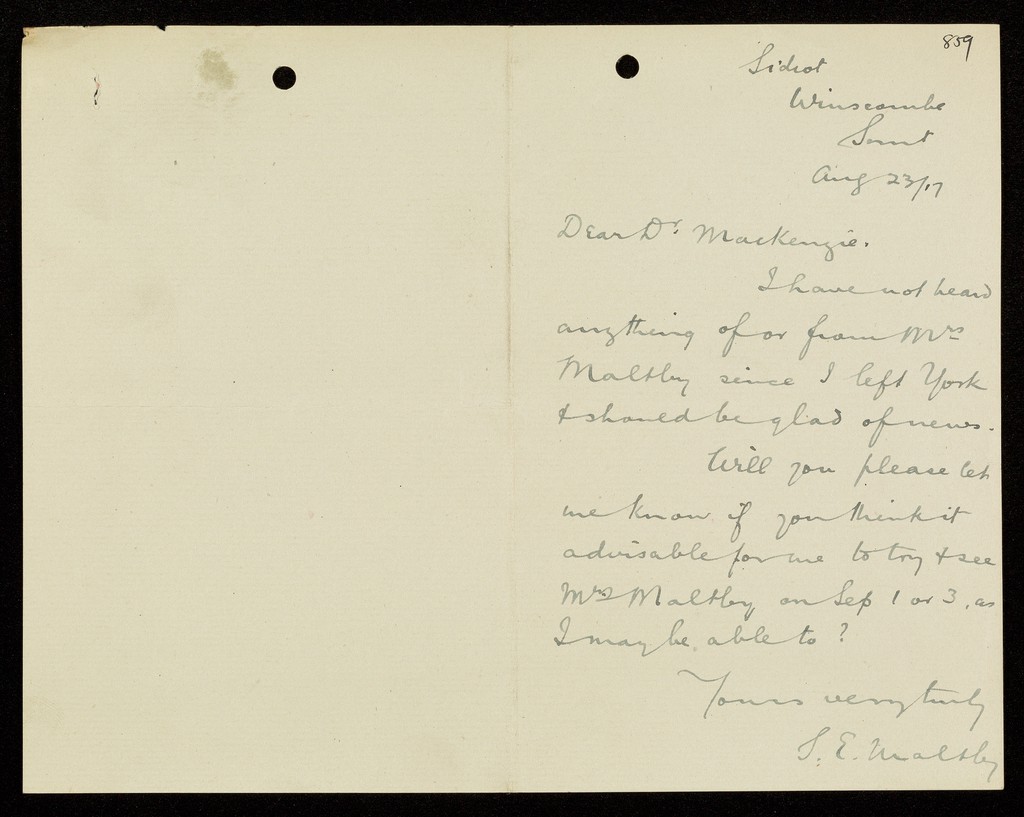 859
Sidcot
Winscombe
Somt
Aug 23/17
Dear Dr. Mackenzie.
I have not heard
anything of or from Mrs
Maltby since I left York
& should be glad of news.
Will you please let
me know if you think it
advisable for me to try & see
Mrs Maltby on Sep 1 or 3, as
I may be able to?
Yours very truly
S. E. Maltby